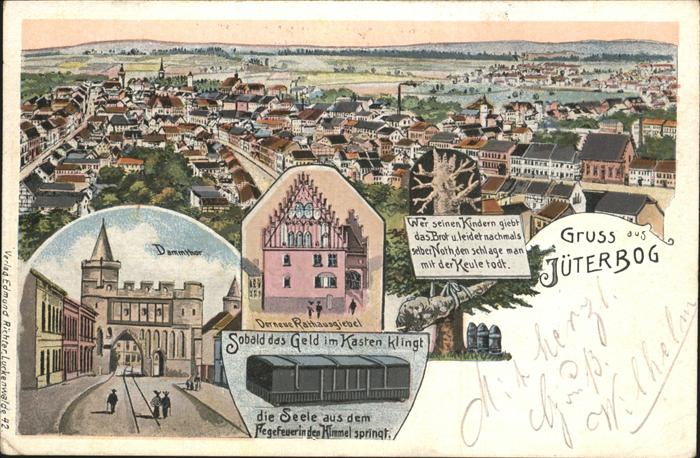 Wer seinen Kindern giebt
das Brot u. leidet nachmals
selber Noth, den schlage man
mit der Keule todt.
Gruss aus
JÜTERBOG
Dammthor
Der neue Rathausgiebel
Sobald das Geld im Kasten klingt
die Seele aus dem
Fegefeuer in den Himmel springt.
Mit herzl.
Gruß.
Wilhelm
Verlag Edmund Richter, Luckenwalde 92